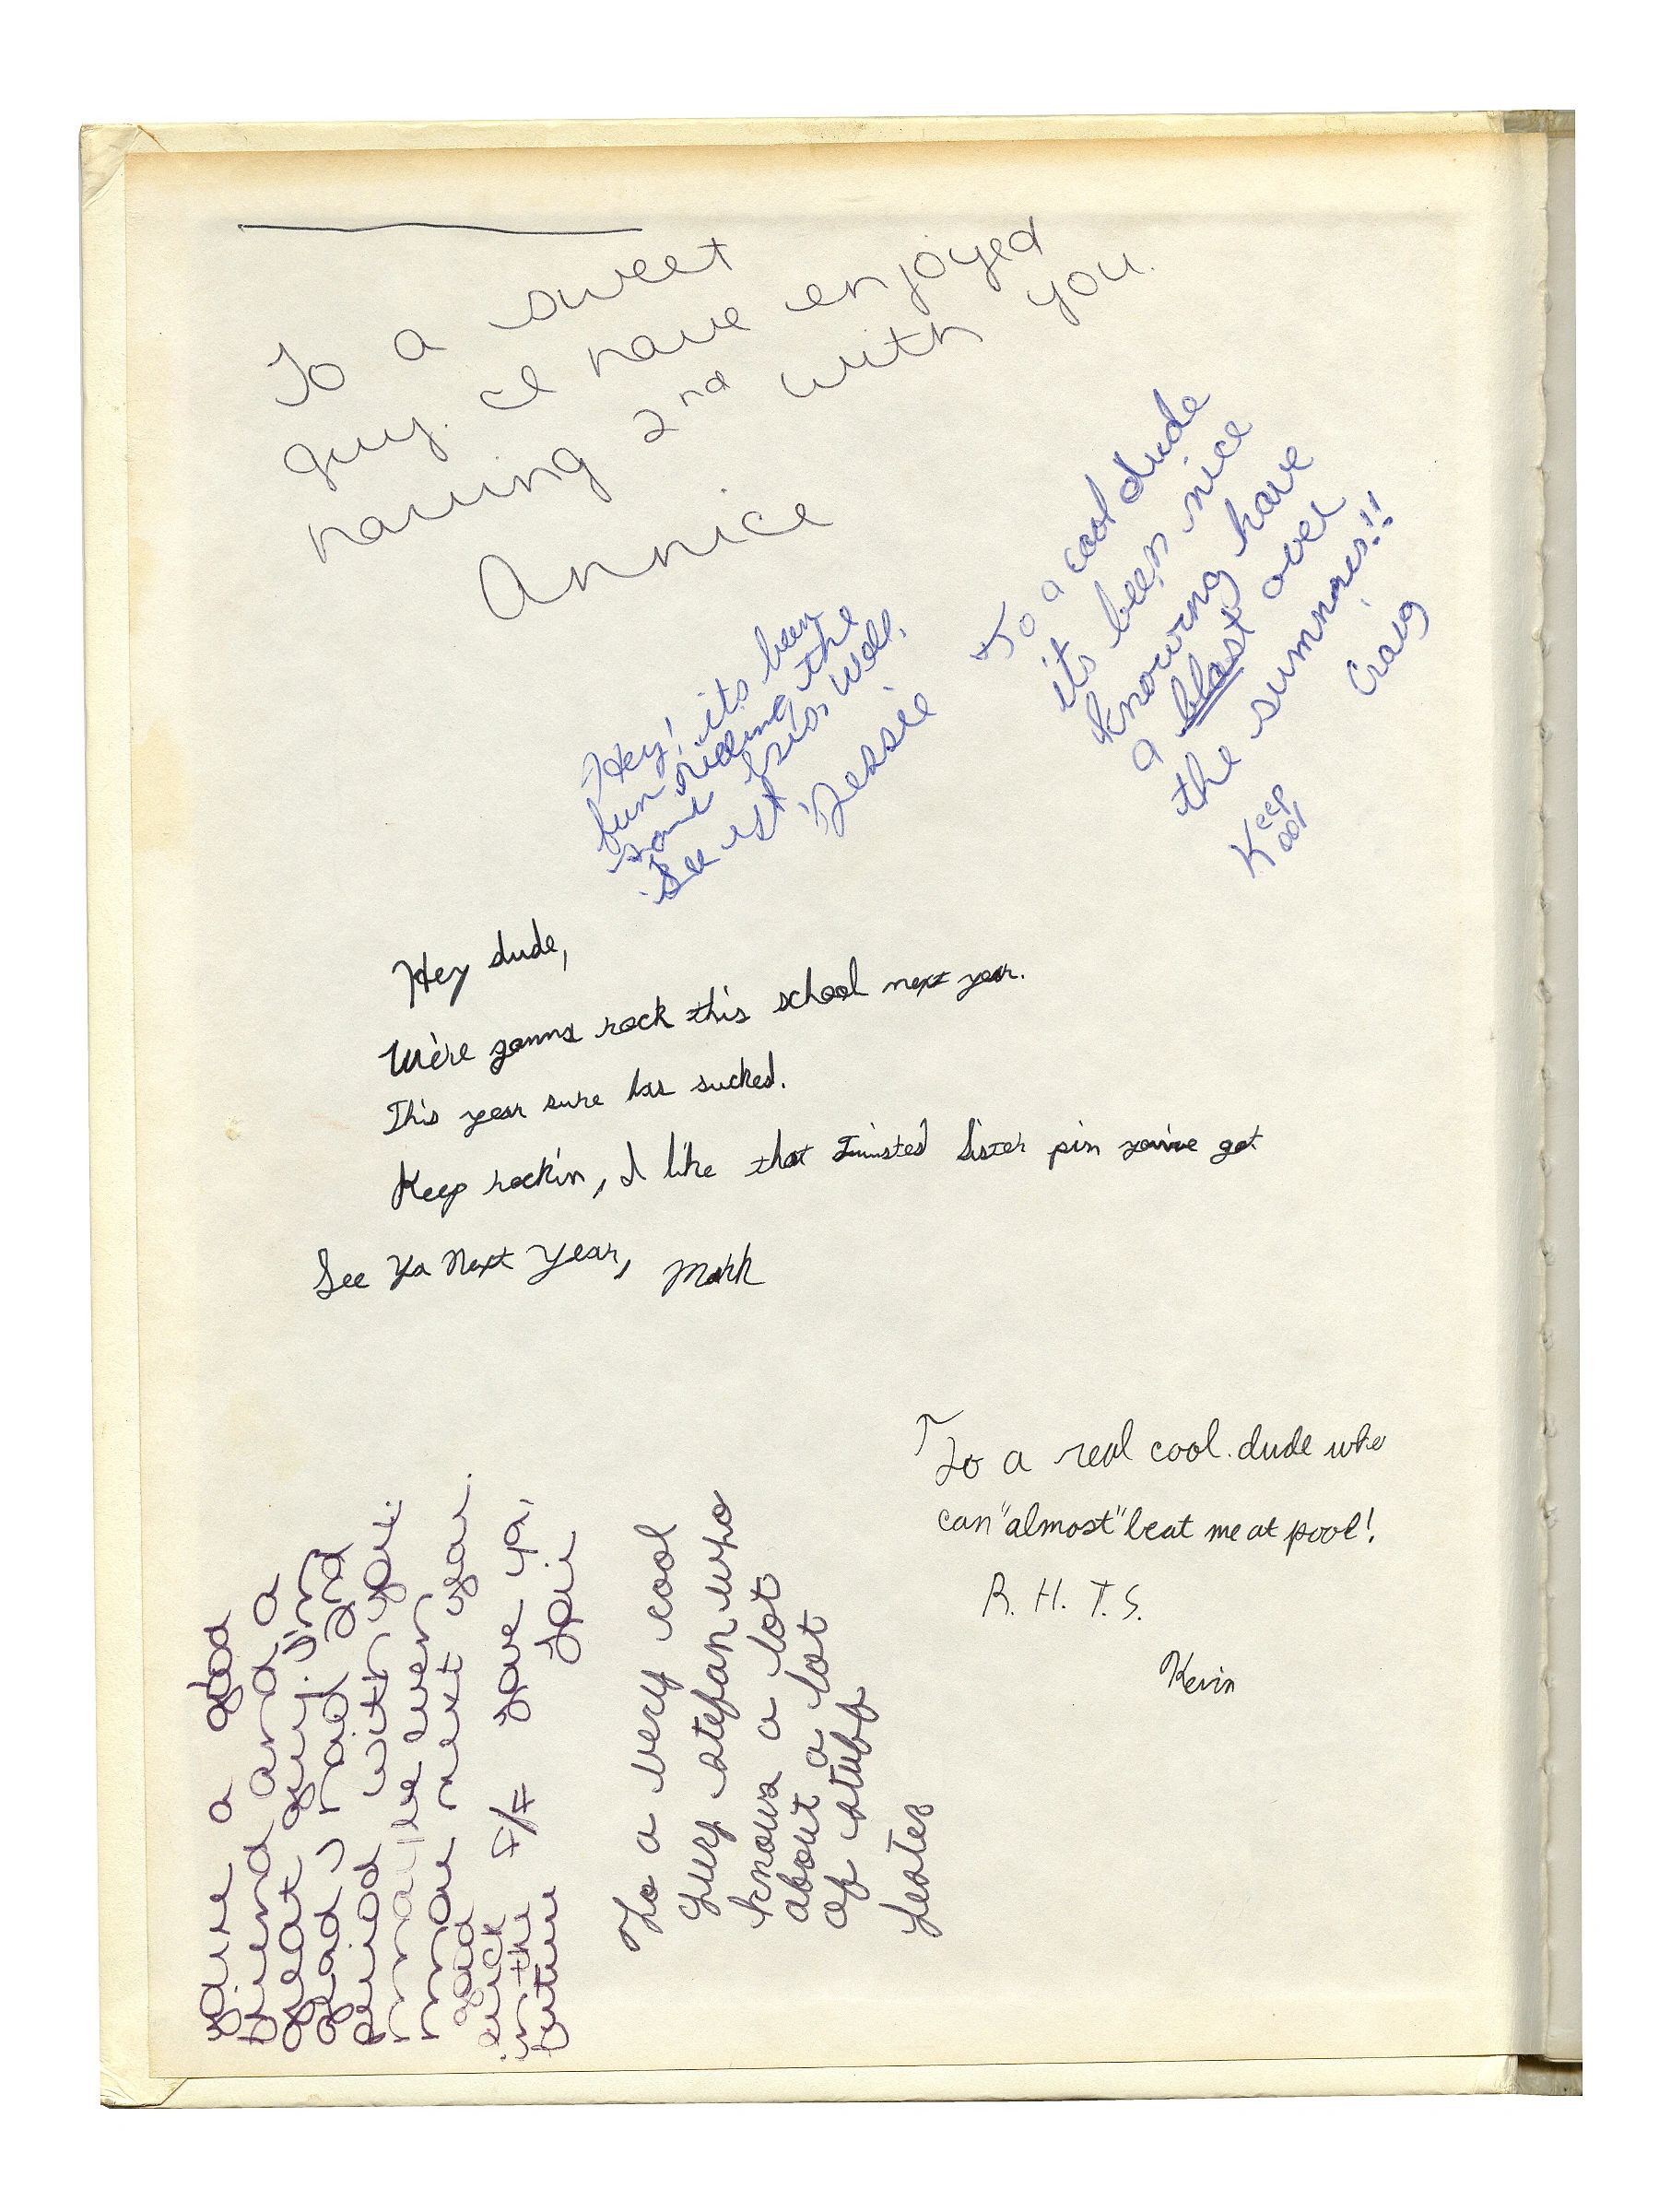 To a sweet
guy. I have enjoyed
having 2nd with you.
Annice
To a cool dude
its been nice
knowing have
a blast over
the summer!!
Craig
Keep
cool
Hey! its been
fun riding the
well.
Jessie
Hey dude,
We're gonna rock this school next year.
This year sure has sucked.
Keep rockin, I like that Twisted Sister pin you've got
See Ya Next Year, Mark
To a real cool dude who
can "almost" beat me at pool!
R. H. T. S.
Kevin
To a very cool
guy stefan who
knows a lot
about a lot
of stuff
Lester
You're a good
friend and a
great guy. I'm
glad I had 2nd
period with you.
maybe we'll even
more next year.
Good
luck F/F Love ya,
in the
future